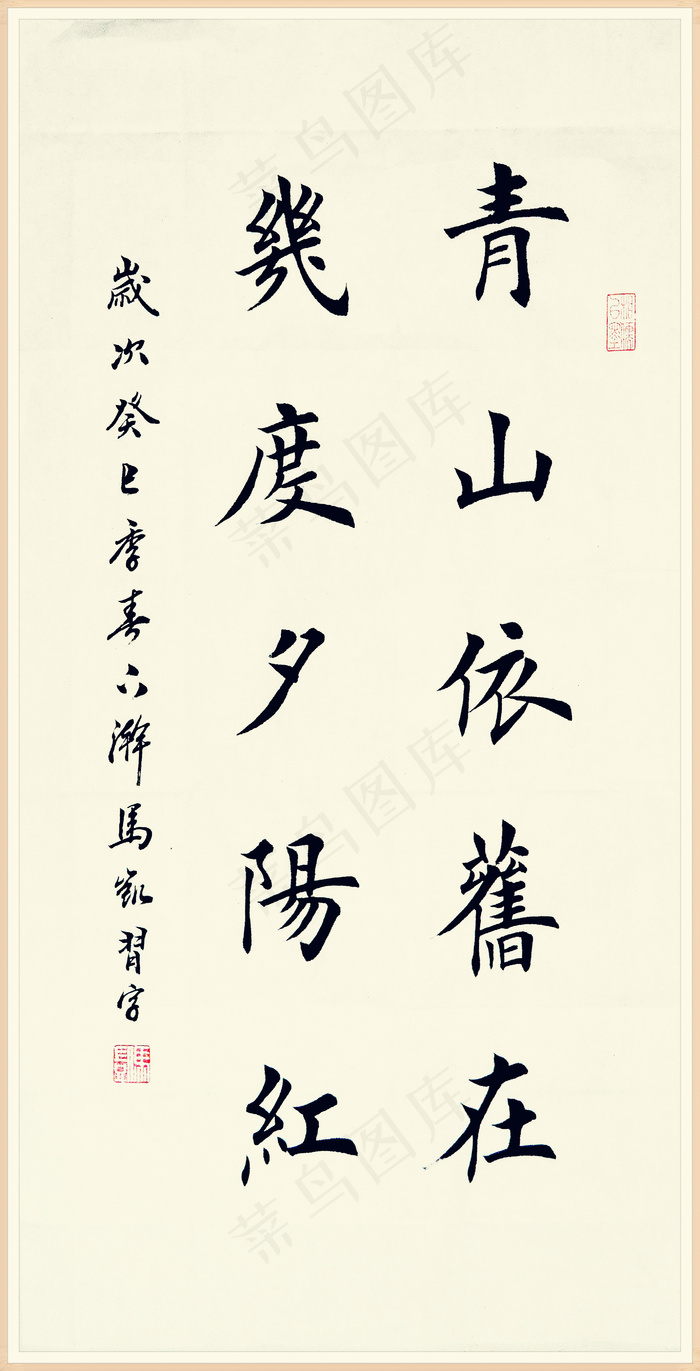 青山依舊在
幾度夕陽紅
歲次癸巳季春下澣馬凱習字
菜鸟图库
菜鸟图库
菜鸟图库
菜鸟图库